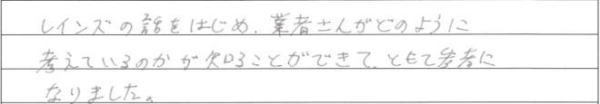 レインズの話をはじめ、業者さんがどのように
考えているのかが知ることができて、とても参考に
なりました。